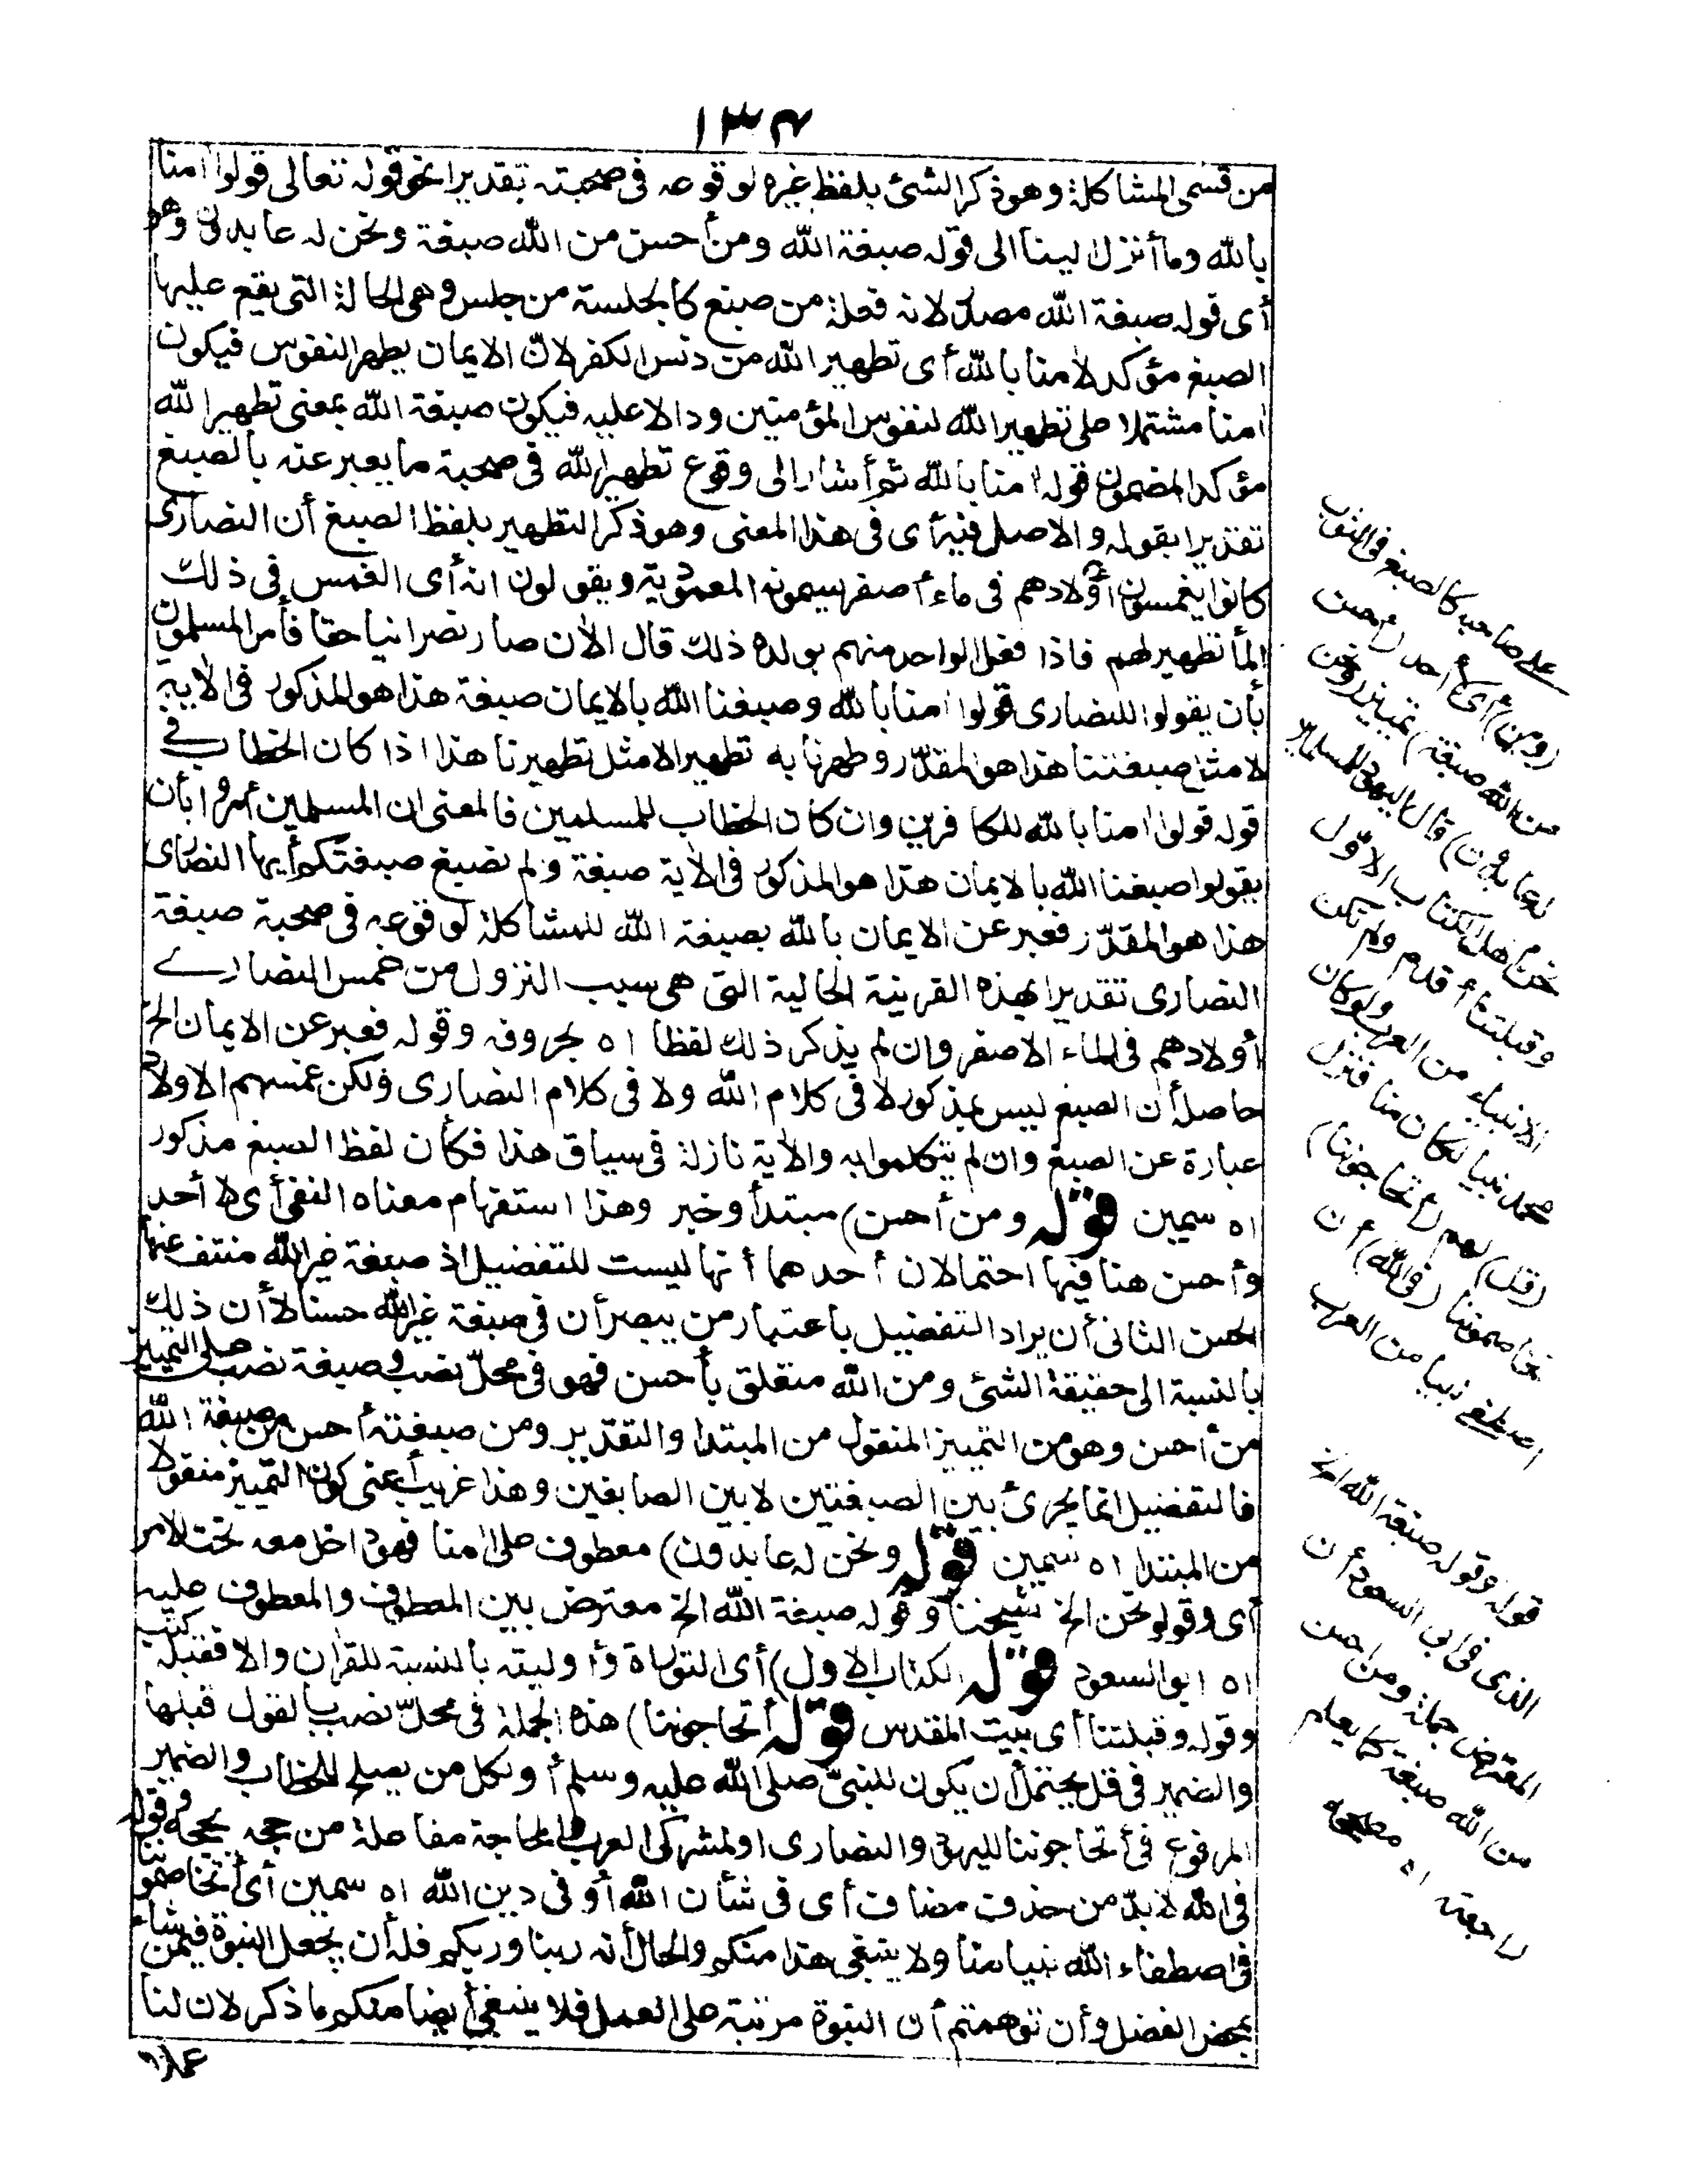 ١٣٤
من قسمى المشاكلة وهو ذكر الشئ بلفظ غيره لوقوعه فى صحبته تقديرا نحو قوله تعالى قولوا اٰمنا
بالله وما أنزل لينا الى قوله صبغة الله ومن أحسن من الله صبغة ونحن له عابدون وهو
أى قوله صبغة الله مصدر لانه فعلة من صبغ كالجلسة من جلس وهى الحالة التى يقع عليها
الصبغ مؤكد لاٰمنا بالله أى تطهير الله من دنس الكفر لان الايمان يطهر النفوس فيكون
اٰمنا مشتملا على تطهير الله لنفوس المؤمنين ودالا عليه فيكون صبغة الله بمعنى تطهير الله
مؤكدا لمضمون قوله اٰمنا بالله ثم أشار الى وقوع تطهير الله فى صحبة ما يعبر عنه بالصبغ
تقديرا بقوله والاصل فيه أى فى هذا المعنى وهو ذكر التطهير بلفظ الصبغ أن النصارى
كانوا يغمسون أولادهم فى ماء أصفر يسمونه المعمودية ويقولون انه أى الغمس فى ذلك
المأ تطهير لهم فاذا فعل الواحد منهم بولده ذلك قال الاٰن صار نصرانيا حقا فأمر المسلمون
بأن يقولوا للنصارى قولوا اٰمنا بالله وصبغنا الله بالايمان صبغة هذا هو المذكور فى الاٰية
لا مثل صبغتنا هذا هو المقدّر وطهرنا به تطهيرا لا مثل تطهيرنا هذا اذا كان الخطاب فى
قوله قولوا اٰمنا بالله للكافرين وان كان الخطاب للمسلمين فالمعنى ان المسلمين أمروا بأن
يقولوا صبغنا الله بالايمان هذا هو المذكور فى الاٰية صبغة ولم نصبغ صبغتكم أيها النصارى
هذا هو المقدّر فعبر عن الايمان بالله بصبغة الله للمشاكلة لوقوعه فى صحبة صبغة
النصارى تقديرا بهذه القرينة الحالية التى هى سبب النزول من غمس النصارى
أولادهم فى الماء الاصفر وان لم يذكر ذلك لفظا اه بحروفه وقوله فعبر عن الايمان الخ
حاصله أن الصبغ ليس بمذكور لا فى كلام الله ولا فى كلام النصارى ولكن غمسهم الاولاد
عبارة عن الصبغ وان لم يتكلموا به والاٰية نازلة فى سياق هذا فكأن لفظ الصبغ مذكور
اه سمين قوله ومن أحسن) مبتدأ وخبر وهذا استفهام معناه النفى أى لا أحد
وأحسن هنا فيها احتمالان أحدهما أنها ليست للتفضيل اذ صبغة غير الله منتف عنها
الحسن الثانى أن يراد التفضيل باعتبار من يبصر أن فى صبغة غير الله حسنا لا أن ذلك
بالنسبة الى حقيقة الشئ ومن الله متعلق بأحسن فهو فى محلّ نصب وصبغة نصب على التمييز
من أحسن وهو من التمييز المنقول من المبتدا والتقدير ومن صبغته أحسن من صبغة الله
فالتفضيل انما يجرى بين الصبغتين لا بين الصابغين وهذا غريب أعنى كون التمييز منقولا
من المبتدا اه سمين قوله ونحن له عابدون) معطوف على اٰمنا فهو داخل معه تحت الامر
أى وقولو نحن الخ شيخنا وقوله صبغة الله الخ معترض بين المعطوف والمعطوف عليه
اه ابو السعود قوله الكتاب الاول) أى التوراة وأوليته بالنسبة للقراٰن والا فقبله كتب
وقوله وقبلتنا أى بيت المقدس قوله أتحاجوننا) هذه الجملة فى محلّ نصب بالقول قبلها
والضمير فى قل يحتمل أن يكون للنبىّ صلى الله عليه وسلم أو لكل من يصلح للخطاب والضمير
المرفوع فى أتحاجوننا لليهود والنصارى او لمشركى العرب والمحاجة مفاعلة من حجه يحجه وقوله
فى الله لا بدّ من حذف مضاف أى فى شأن الله أو فى دين الله اه سمين أى أتخاصموننا
فى اصطفاء الله نبيا منا ولا ينبغى هذا منكم والحال أنه ربنا وربكم فله أن يجعل النبوة فيمن شاء
بمحض الفضل وأن توهمتم أن النبوة مرتبة على العمل فلا ينبغى أيضا منكم ما ذكر لان لنا
عملا
على صاحبه كالصبغ فى الثوب
(ومن) أى لا أحد (أحسن
من الله صبغة) تمييز (ونحن
له عابدون) قال اليهود للمسلمين
نحن أهل الكتاب الاوّل
وقبلتنا أقدم ولم تكن
الانبياء من العرب ولو كان
محمد نبيا لكان منا فنزل
(قل) لهم (أتحاجوننا)
تخاصموننا (فى الله) أن
اصطفى نبيا من العرب
قوله وقوله صبغة الله الخ
الذى فى ابى السعود أن
المعترض جملة ومن أحسن
من الله صبغة كما يعلم
بمراجعته اه مصححه